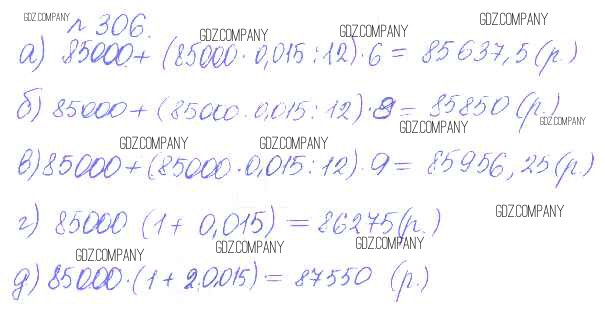 GDZ.COMPANY
№ 306.
GDZ.COMPANY GDZ.COMPANY GDZ.COMPANY
а) 85000 + (85000 · 0,015 : 12) · 6 = 85637,5 (р.)
б) 85000 + (85000 · 0,015 : 12) · 8 = 85850 (р.)
GDZ.COMPANY GDZ.COMPANY
GDZ.COMPANY GDZ.COMPANY
в) 85000 + (85000 · 0,015 : 12) · 9 = 85956,25 (р.)
GDZ.COMPANY
г) 85000 (1 + 0,015) = 86275 (р.)
GDZ.COMPANY GDZ.COMPANY GDZ.COMPANY
д) 85000 · (1 + 2·0,015) = 87550 (р.)